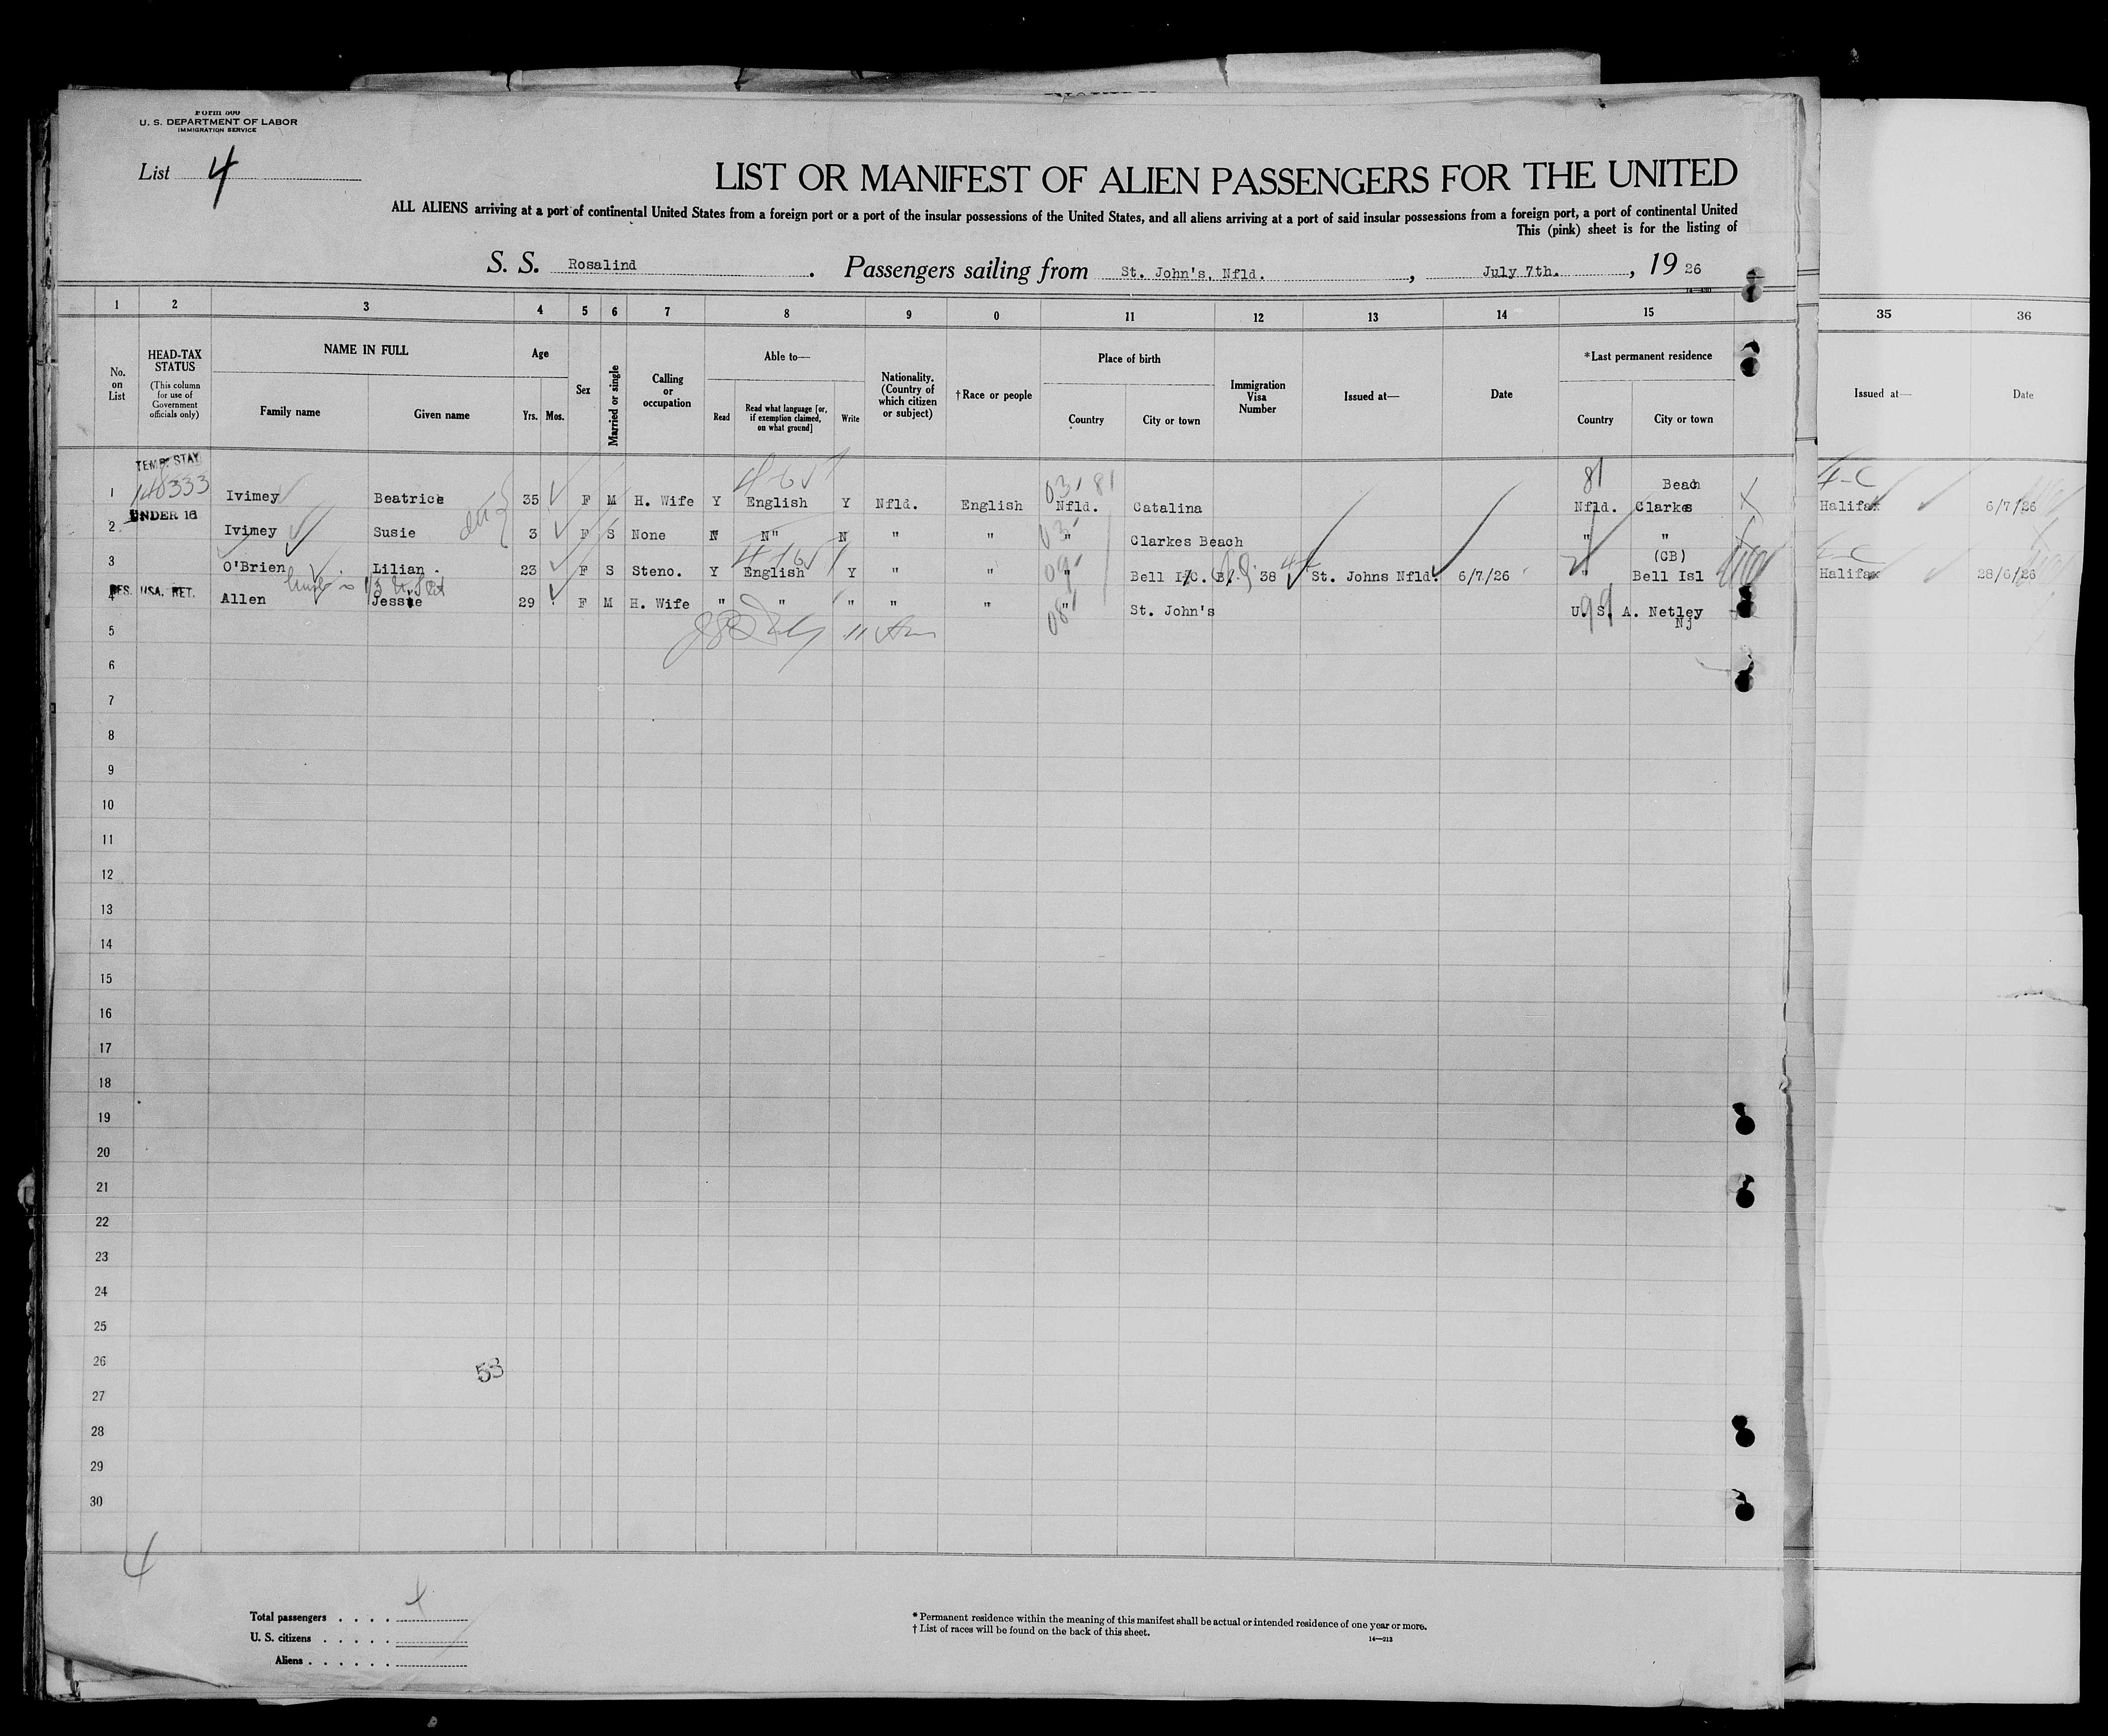 Form 500
U. S. DEPARTMENT OF LABOR
IMMIGRATION SERVICE
List 4
LIST OR MANIFEST OF ALIEN PASSENGERS FOR THE UNITED
ALL ALIENS arriving at a port of continental United States from a foreign port or a port of the insular possessions of the United States, and all aliens arriving at a port of said insular possessions from a foreign port, a port of continental United
This (pink) sheet is for the listing of
S. S. Rosalind. Passengers sailing from St. John's, Nfld., July 7th., 19 26
1 2 3 4 5 6 7 8 9 0 11 12 13 14 15 35 36
No. on List
HEAD-TAX STATUS
(This column for use of Government officials only)
NAME IN FULL
Family name Given name
Age
Yrs. Mos.
Sex
Married or single
Calling or occupation
Able to—
Read Read what language [or, if exemption claimed, on what ground] Write
Nationality. (Country of which citizen or subject)
†Race or people
Place of birth
Country City or town
Immigration Visa Number
Issued at—
Date
*Last permanent residence
Country City or town
Issued at— Date
TEMP. STAY
140333 03 81 81 Beach 4-C
1 Ivimey Beatrice 35 F M H. Wife Y English Y Nfld. English Nfld. Catalina Nfld. Clarkes Halifax 6/7/26
UNDER 16
2 Ivimey Susie 3 F S None N N" N " " 03 " Clarkes Beach " "
(CB)
3 O'Brien Lilian 23 F S Steno. Y English Y " " 09 " Bell I C. B. 38 St. Johns Nfld. 6/7/26 " Bell Isl Halifax 28/6/26
RES. USA. RET.
4 Allen Jessie 29 F M H. Wife " " " " " 08 " St. John's U. S. A. Netley
99 NJ
5
6
7
8
9
10
11
12
13
14
15
16
17
18
19
20
21
22
23
24
25
26
53
27
28
29
30
4
Total passengers . . . .
U. S. citizens . . . . .
Aliens . . . . . .
* Permanent residence within the meaning of this manifest shall be actual or intended residence of one year or more.
† List of races will be found on the back of this sheet.
14—213